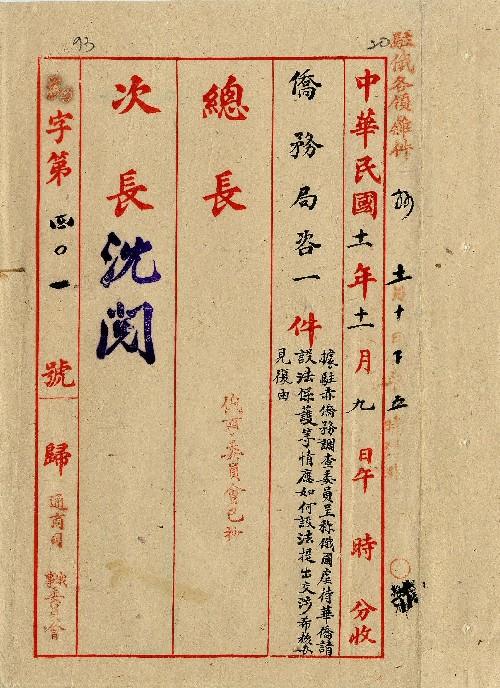 20
93
駐俄各領雜件
中華民國十一年十一月九日午 時 分收
僑務局咨一件
據駐赤僑務調查委員呈稱俄國虐待華僑請
設法保護等情應如何設法提出交涉希核辦
見復由
總長
俄事委員會已抄
次長
沈閱
字第四〇一號歸
通商司
俄事委員會